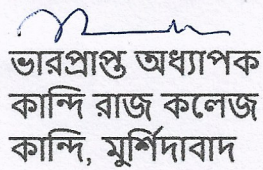 ভারপ্রাপ্ত অধ্যাপক
কান্দি রাজ কলেজ
কান্দি, মুর্শিদাবাদ